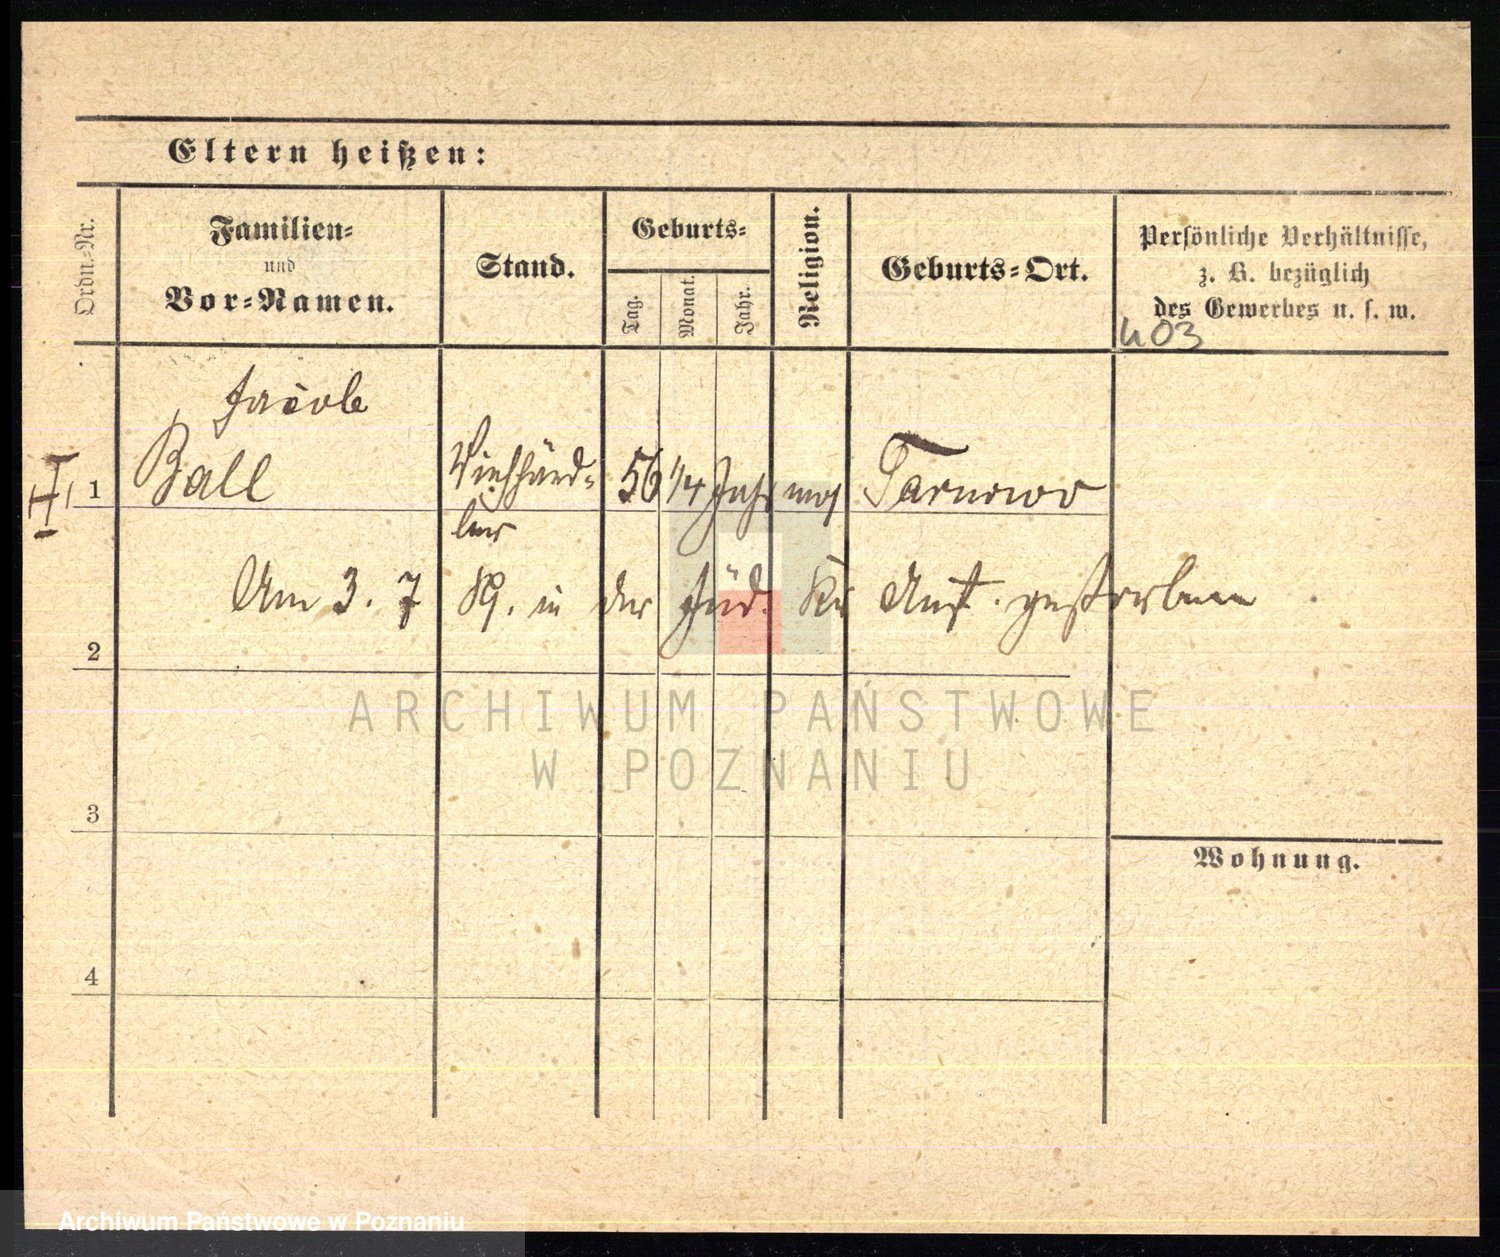 Eltern heißen:
Ordn.-Nr.
Familien-
und
Vor-Namen.
Stand.
Geburts-
Tag.
Monat.
Jahr.
Religion.
Geburts-Ort.
Persönliche Verhältnisse,
z. B. bezüglich
des Gewerbes u. s. w.
403
Jacob
1 Ball Viehhänd- 56 1/4 Jahr mos Tarnowo
ler
Am 3. 7 89. in der jüd. Kr Anst. gestorben
2
3
4
Wohnung.
ARCHIWUM PAŃSTWOWE
W POZNANIU
Archiwum Państwowe w Poznaniu